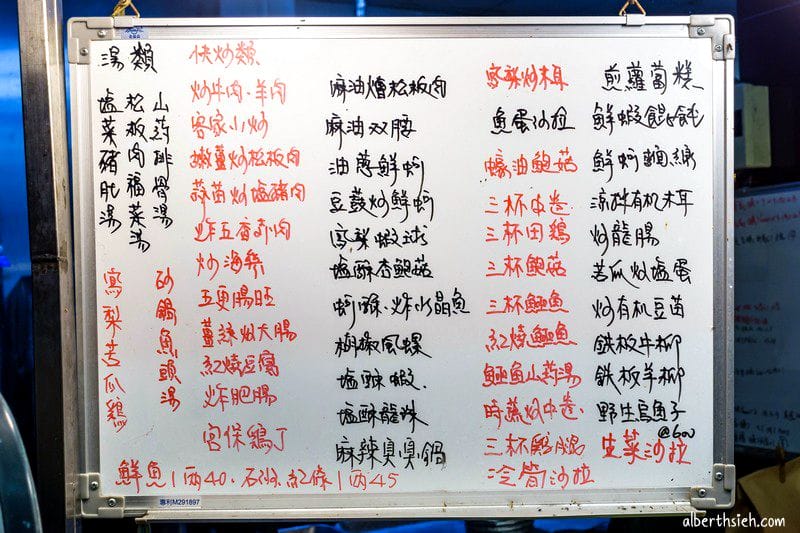 湯類
山藥排骨湯
松板肉福菜湯
鹽菜豬肚湯
砂鍋魚頭湯
鳳梨苦瓜鷄
快炒類
炒牛肉、羊肉
客家小炒
嫩薑炒松板肉
蒜苗炒塩豬肉
炸五香豬肉
五更腸旺
薑絲炒大腸
紅燒豆腐
炸肥腸
宮保鷄丁
麻油燴松板肉
麻油双腰
油蔥鮮蚵
豆鼓炒鮮蚵
鳳梨蝦球
塩酥杏鮑菇
蚵酥、炸水晶魚
胡椒風螺
塩酥蝦、
塩酥龍珠
麻辣臭臭鍋
鳳梨炒木耳
魚蛋沙拉
蠔油鮑菇
三杯中卷
三杯田鷄
三杯鮑菇
三杯鱷魚
紅燒鱷魚
鱷魚山药湯
時蔬炒中卷、
三杯鷄腿
冷筍沙拉
煎蘿蔔糕
鮮蝦餛飩
鮮蚵麵線
涼拌有机木耳
炒龍腸
苦瓜炒塩蛋
炒有机豆苗
鉄板牛柳
鉄板羊柳
野生烏魚子
@600
生菜沙拉
鮮魚1両40、石斑、紅條1両45
專利M291897
alberthsieh.com